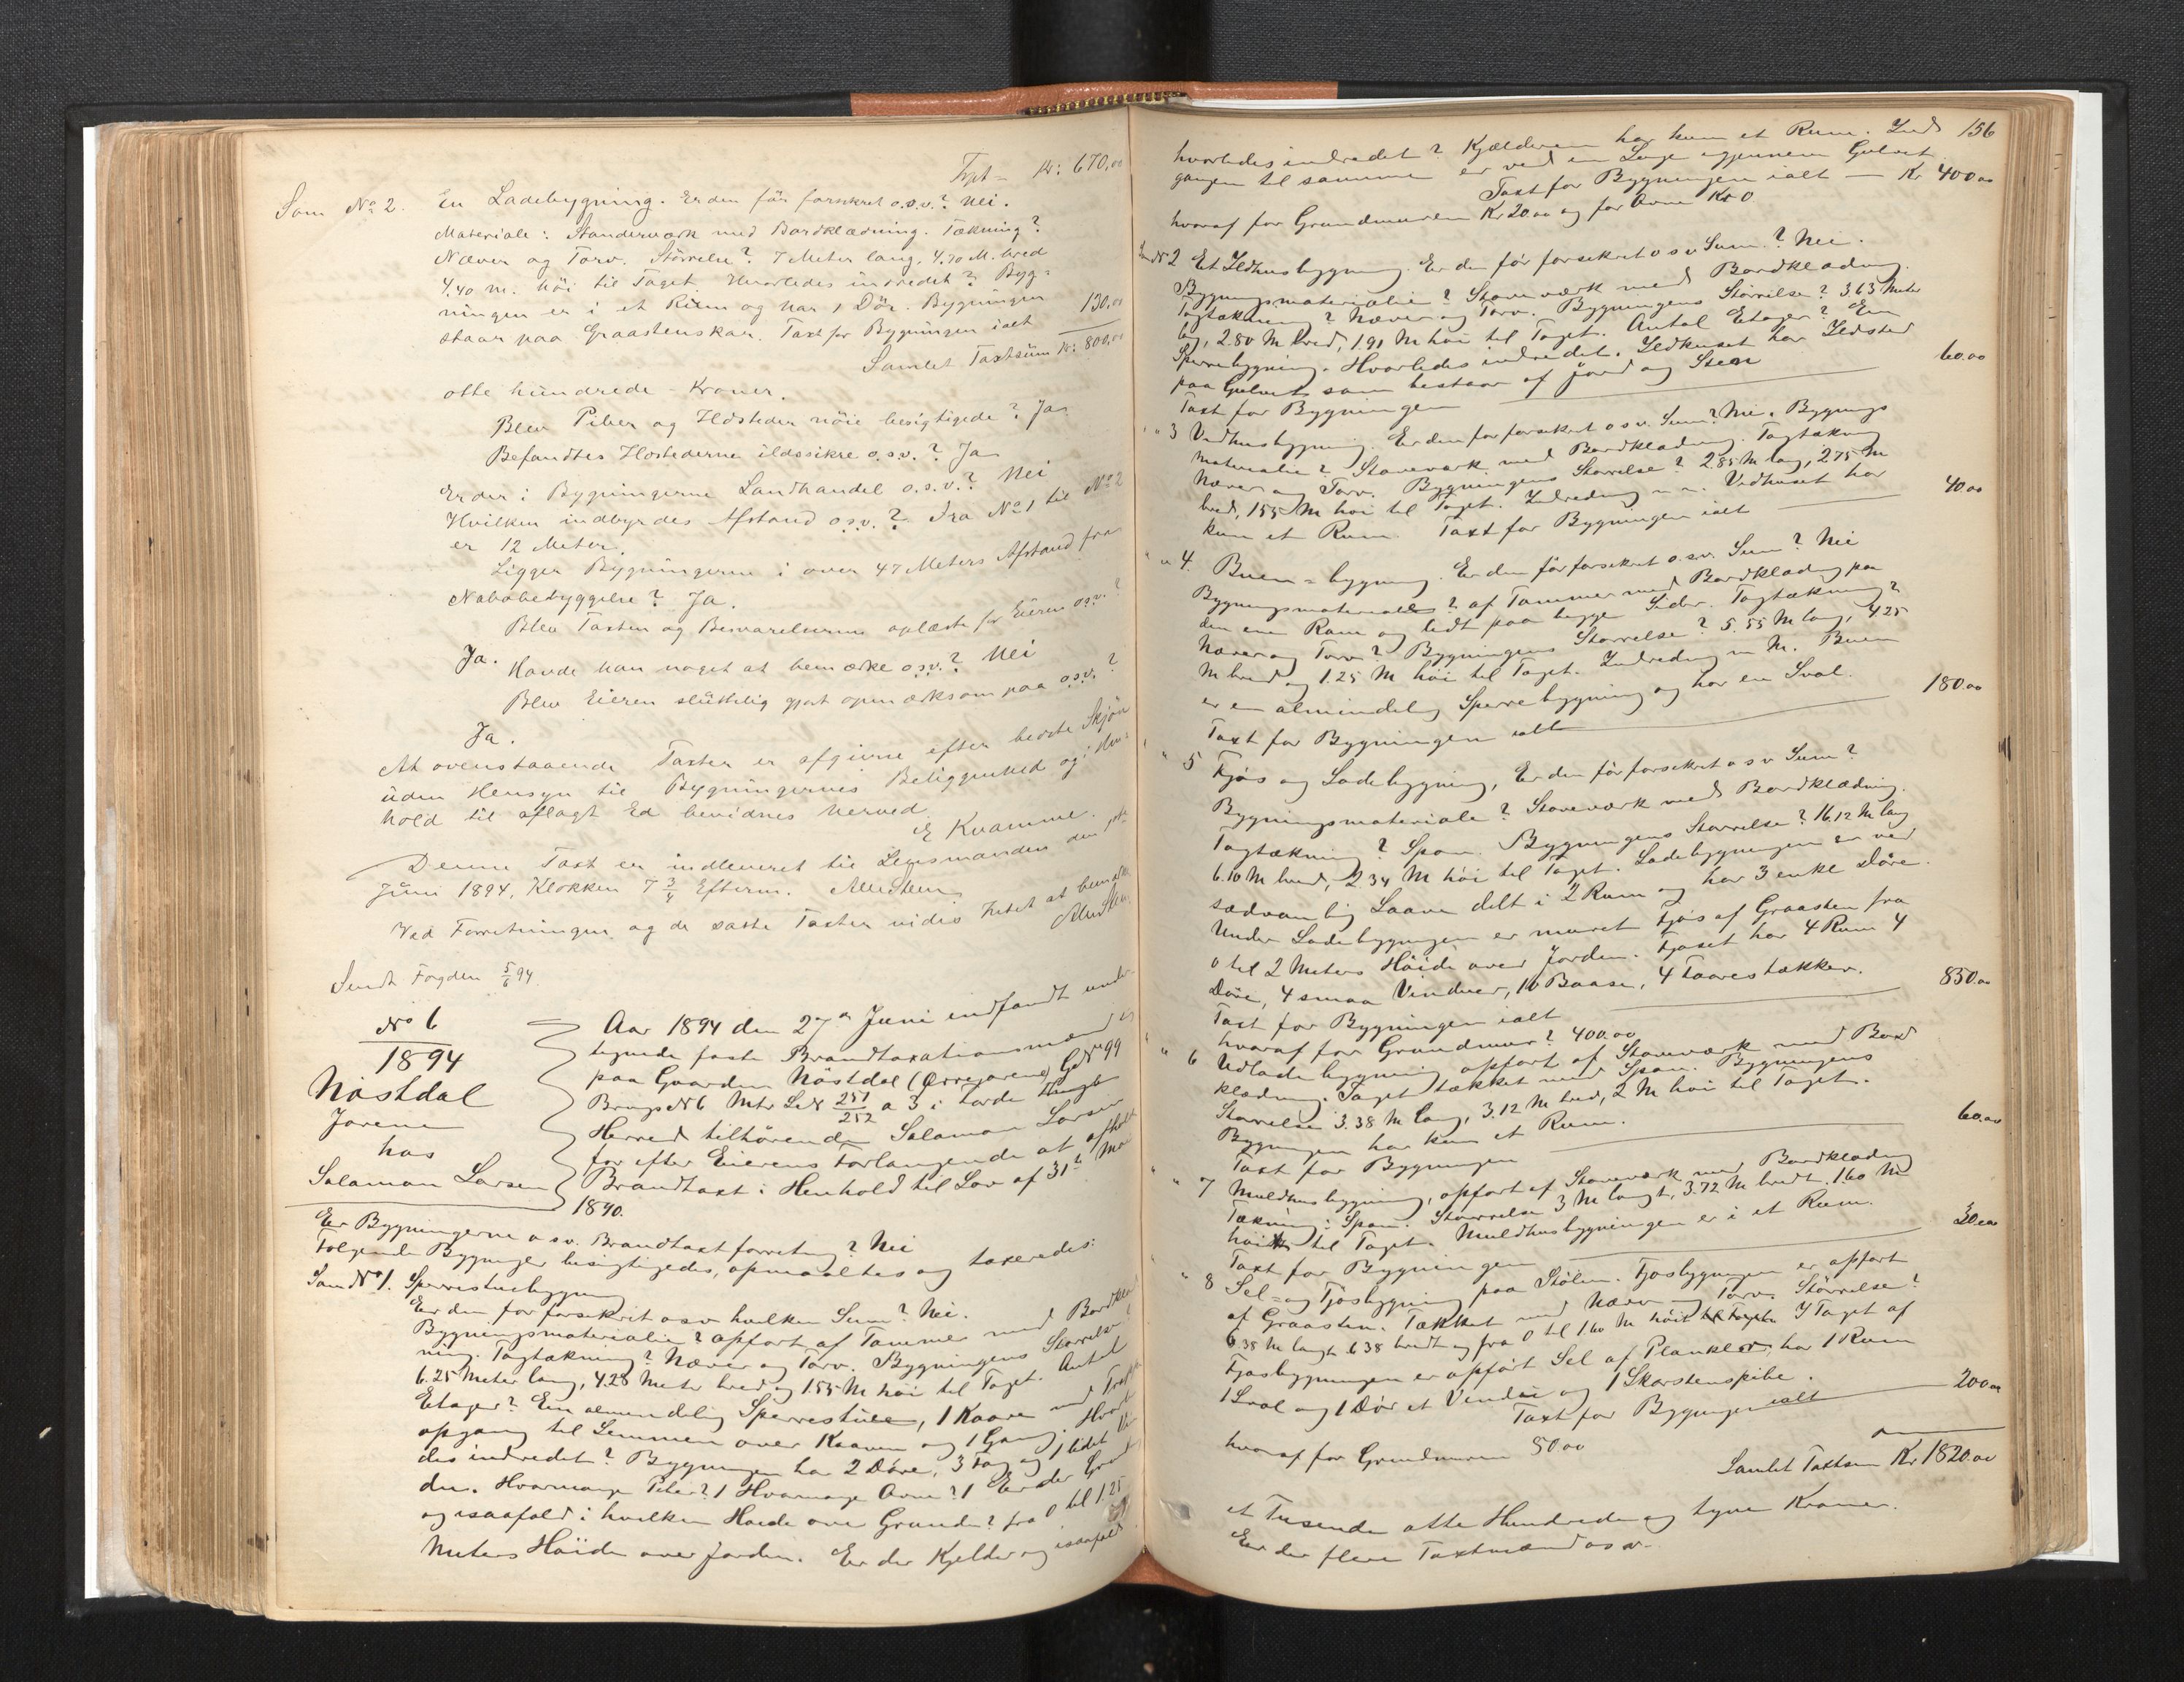 Tpt = Kr: 670,00
Som No 2. En Ladebygning. Er den før forsikret o.s.v.? Nei.
Materiale: Standerværk med Bordklædning. Tækning?
Næver og Torv. Størrelse? 7 Meter lang, 4,70 M. bred
4,40 m. høi til Taget. Hvorledes indredet? Byg-
ningen er i et Rum og har 1 Dör. Bygningen
staar paa Graastenskar. Taxt for Bygningen ialt 130,00
Samlet Taxtsum Kr: 800,00
otte hundrede - Kroner.
Blev Piber og Ildsteder nöie besigtigede? Ja
Befandtes Ildstederne ildssikre o.s.v.? Ja
Er der i Bygningerne Landhandel o.s.v.? Nei
Hvilken indbyrdes Afstand o.s.v.? Fra No 1 til No 2
er 12 Meter.
Ligger Bygningerne i over 47 Meters Afstand fra
Nabobebyggelse? Ja.
Blev Taxten og Besvarelserne oplæste for Eieren o.s.v.?
Ja.
Havde han noget at bemærke o.s.v.? Nei
Blev Eieren sluttelig gjort opmærksom paa o.s.v.?
Ja.
At ovenstaaende Taxter er afgivne efter bedste Skjön
uden Hensyn til Bygningernes Beliggenhed og i Hen-
hold til aflagt Ed bevidnes herved
E Kvamme.
Denne Taxt er indleveret til Lensmanden den
Juni 1894, Klokken 7 3/4 Efterm.
Ved Forretningen og de satte Taxter vides Intet at bemærke
Sendt Fogden 5/6 94
No 6
1894
Nöstdal
Jarene
hos
Salamon Larsen
Aar 1894 den 27de Juni indfandt under-
tegnede faste Brandtaxationsmænd
paa Gaarden Nöstdal G No 99
Brugs No 6 Mtr L No 251/252 a 3 i
Herred tilhörende Salamon Larsen
for efter Eierens Forlangende at afholde
Brandtaxt i Henhold til Lov af 31te Mai
1890.
Er Bygningerne o sv. Brandtaxtforretning? Nei
Følgende Bygninger besigtigedes, opmaaltes og taxeredes:
Som No 1. Sperrestuebygning
Er den for forsikrit osv hvilken Sum? Nei.
Bygningsmaterialie? opfört af Tømmer med Bordklæd
ning. Tagtækning? Næver og Torv. Bygningens Størrelse?
6.25 Meter lang, 4.28 Meter bred og 1.55 M høi til Taget. Antal
Etager? Ein almendelig Sperrestue, 1 Kaave med Trappe
opgang til Lemmen over Kaaven og 1 Gang. Hvorle
des indredet? Bygningen har 2 Döre, 3 Fag og 1 lidet Vin
due. Hvormange Piber? 1 Hvormange Ovne? 1 Er der Grund
og isaafald i hvilken Høide over Grunden? fra 0 til 1.25
Meters Höide over Jorden. Er der Kjelder og isaafald
156
hvorledes indredet? Kjælderen har kun et Rum. Ind
gangen til samme er ved en Luge igjennem Gulvet
Taxt for Bygningen ialt — Kr 400 00
hvoraf for Grundmuren Kr 20.00 og for Ovne Kr 0
Som No 2 Et Ildhusbygning. Er den för forsekret osv Sum? Nei.
Bygningsmaterialie? Staveværk med Bordklædning.
Tagtækning? Næver og Torv. Bygningens Störrelse? 3.63 Meter
lg, 2.80 M bred, 1.91 M høi til Taget. Antal Etager? Ein
Sperrebygning. Hvorledes indredet. Ildhuset har Ildsted
paa Gulvet som bestaar af jord og Sten
Taxt for Bygningen 60.00
" " 3 Vedhusbygning. Er den for forsekret osv. Sum? Nei. Bygnings
materialie? Staveværk med Bordklædning. Tagtækning
Næver og Torv. Bygningens Størrelse? 2.85 M lang, 2.75 M
bred, 1.55 M høi til Taget. Indredning m. Vedhuset har
kun et Rum. Taxt for Bygningen ialt 40.00
" " 4. Buen = bygning. Er den för forsekret o.s.v. Sum? Nei
Bygningsmateriale? af Tømmer med Bordklædning paa
den ene Ram og lidt paa begge Sider. Tagtækning?
Næver og Torv? Bygningens Størrelse? 5.55 M lang, 4.25
M bred og 1.25 M høi til Taget. Indredning m M. Buen
er en almindelig Sperrebygning og har en Sval.
Taxt for Bygningen ialt 180.00
" 5 Fjös og Ladebygning, Er den för forsekret osv Sum?
Bygningsmateriale? Staveværk med Bordklædning.
Tagtækning? Spon. Bygningens Størrelse? 16.12 M lang
6.10 M bred, 2.34 M høi til Taget. Ladebygningen er ved
sædvanlig Laave delt i 2 Rum og har 3 enkle Döre.
Under Ladebygningen er muret Fjös af Graasten fra
0 til 2 Meters Höide over Jorden. Fjøset har 4 Rum 4
Döre, 4 smaa Vinduer, 10 Baase, 4 Faarestækker.
Taxt for Bygningen ialt 850.00
hvoraf for Grundmur? 400.00
" 6 Udladebygning opført af Staveværk med Bord
klædning. Taget tækket med Spon. Bygningens
Størrelse 3.38 M lang, 3.12 M bred, 2 M höi til Taget.
Bygningen har kun et Rum.
Taxt for Bygningen 60.00
" 7 Muldhusbygning, opfört af Staveværk med Bordklædning
Tækning: Spon. Størrelse 3 M langt, 3.72 M bredt. 1.60 M
høit til Taget. Muldhusbygningen er i et Rum.
Taxt for Bygningen 30.00
" 8 Sel = og Fjösbygning paa Stölen. Fjosbygningen er opfört
af Graasten. Tækket med Næver og Torv. Störrelse?
6.38 M langt 6.38 bredt og fra 0 til 1.60 M höit Y Taget af
Fjosbygningen er opført Sel af Planker, har 1 Rum
1 Sval og 1 Dör et Vindu og 1 Skorstenspibe.
Taxt for Bygningen ialt 200 00
hvoraf for Grundmuren 50 00
Samlet Taxtsum Kr 1820.00
et Tusende otte Hundrede og tyve Kroner.
Er der flere Taxtmænd osv.